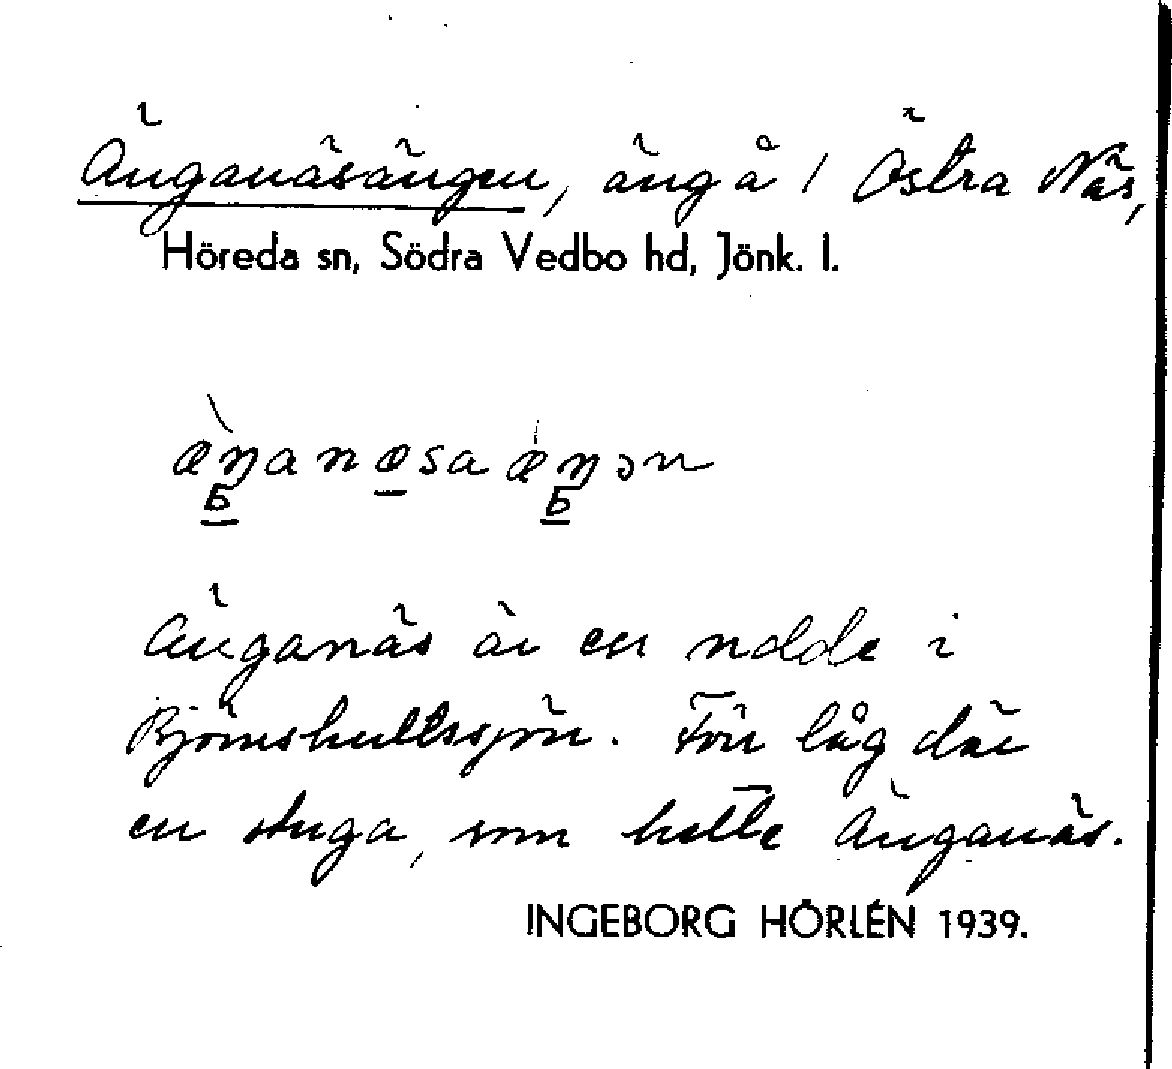 Änganäsängen, äng å / Östra Näs,
Höreda sn, Södra Vedbo hd, Jönk. l.
æ̀ŋanøsa æŋən
Änganäs är en udde i
Björnshultssjön. Förr låg där
en stuga, som hette Änganäs.
INGEBORG HÖRLÉN 1939.